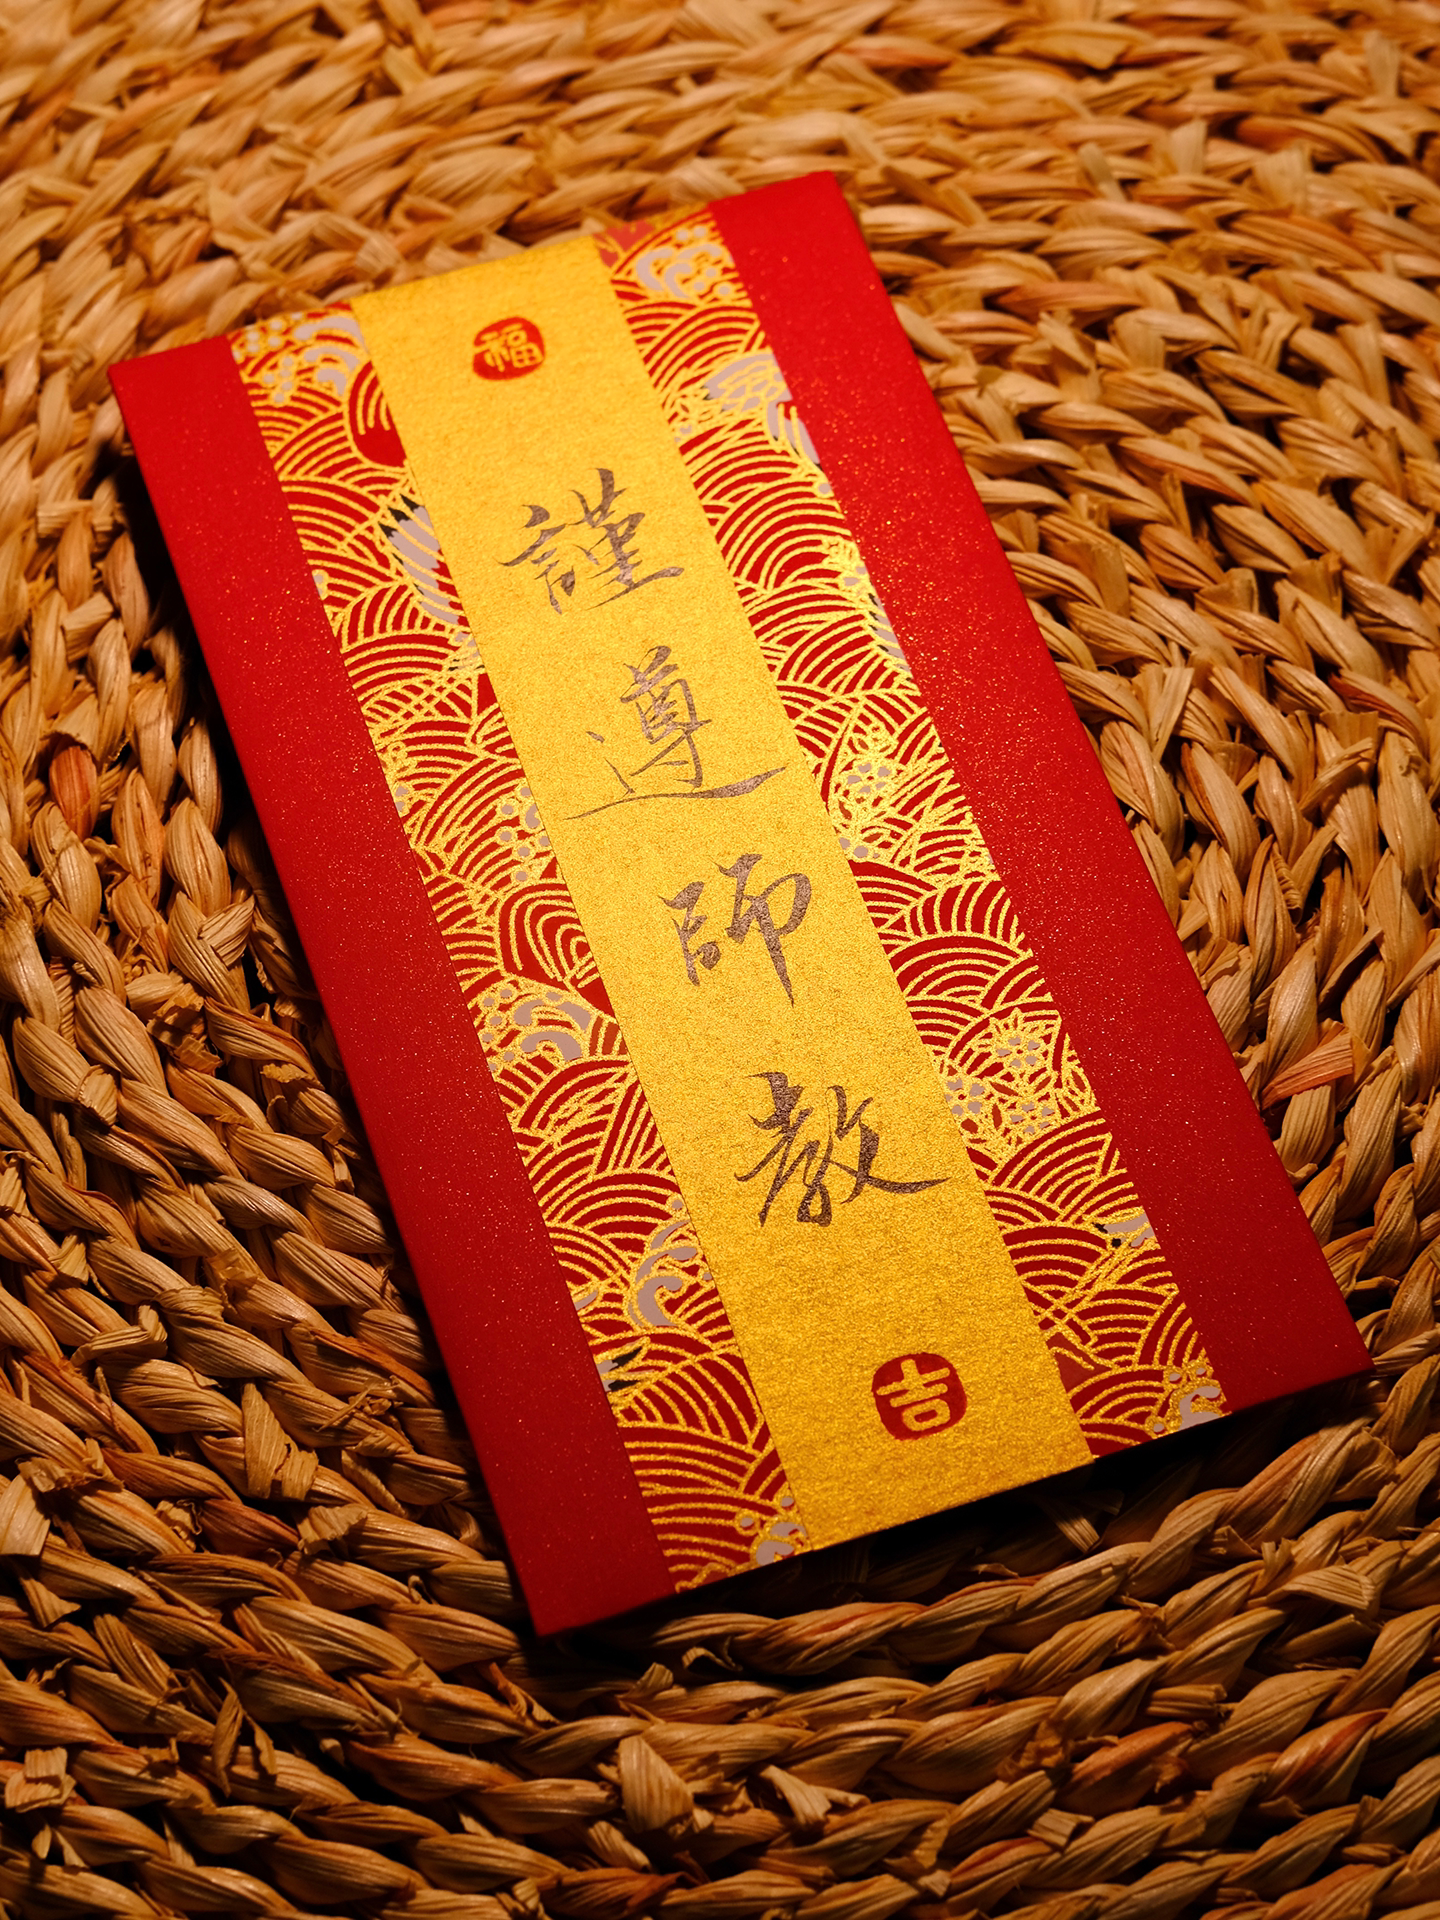 福
謹
遵
師
教
吉